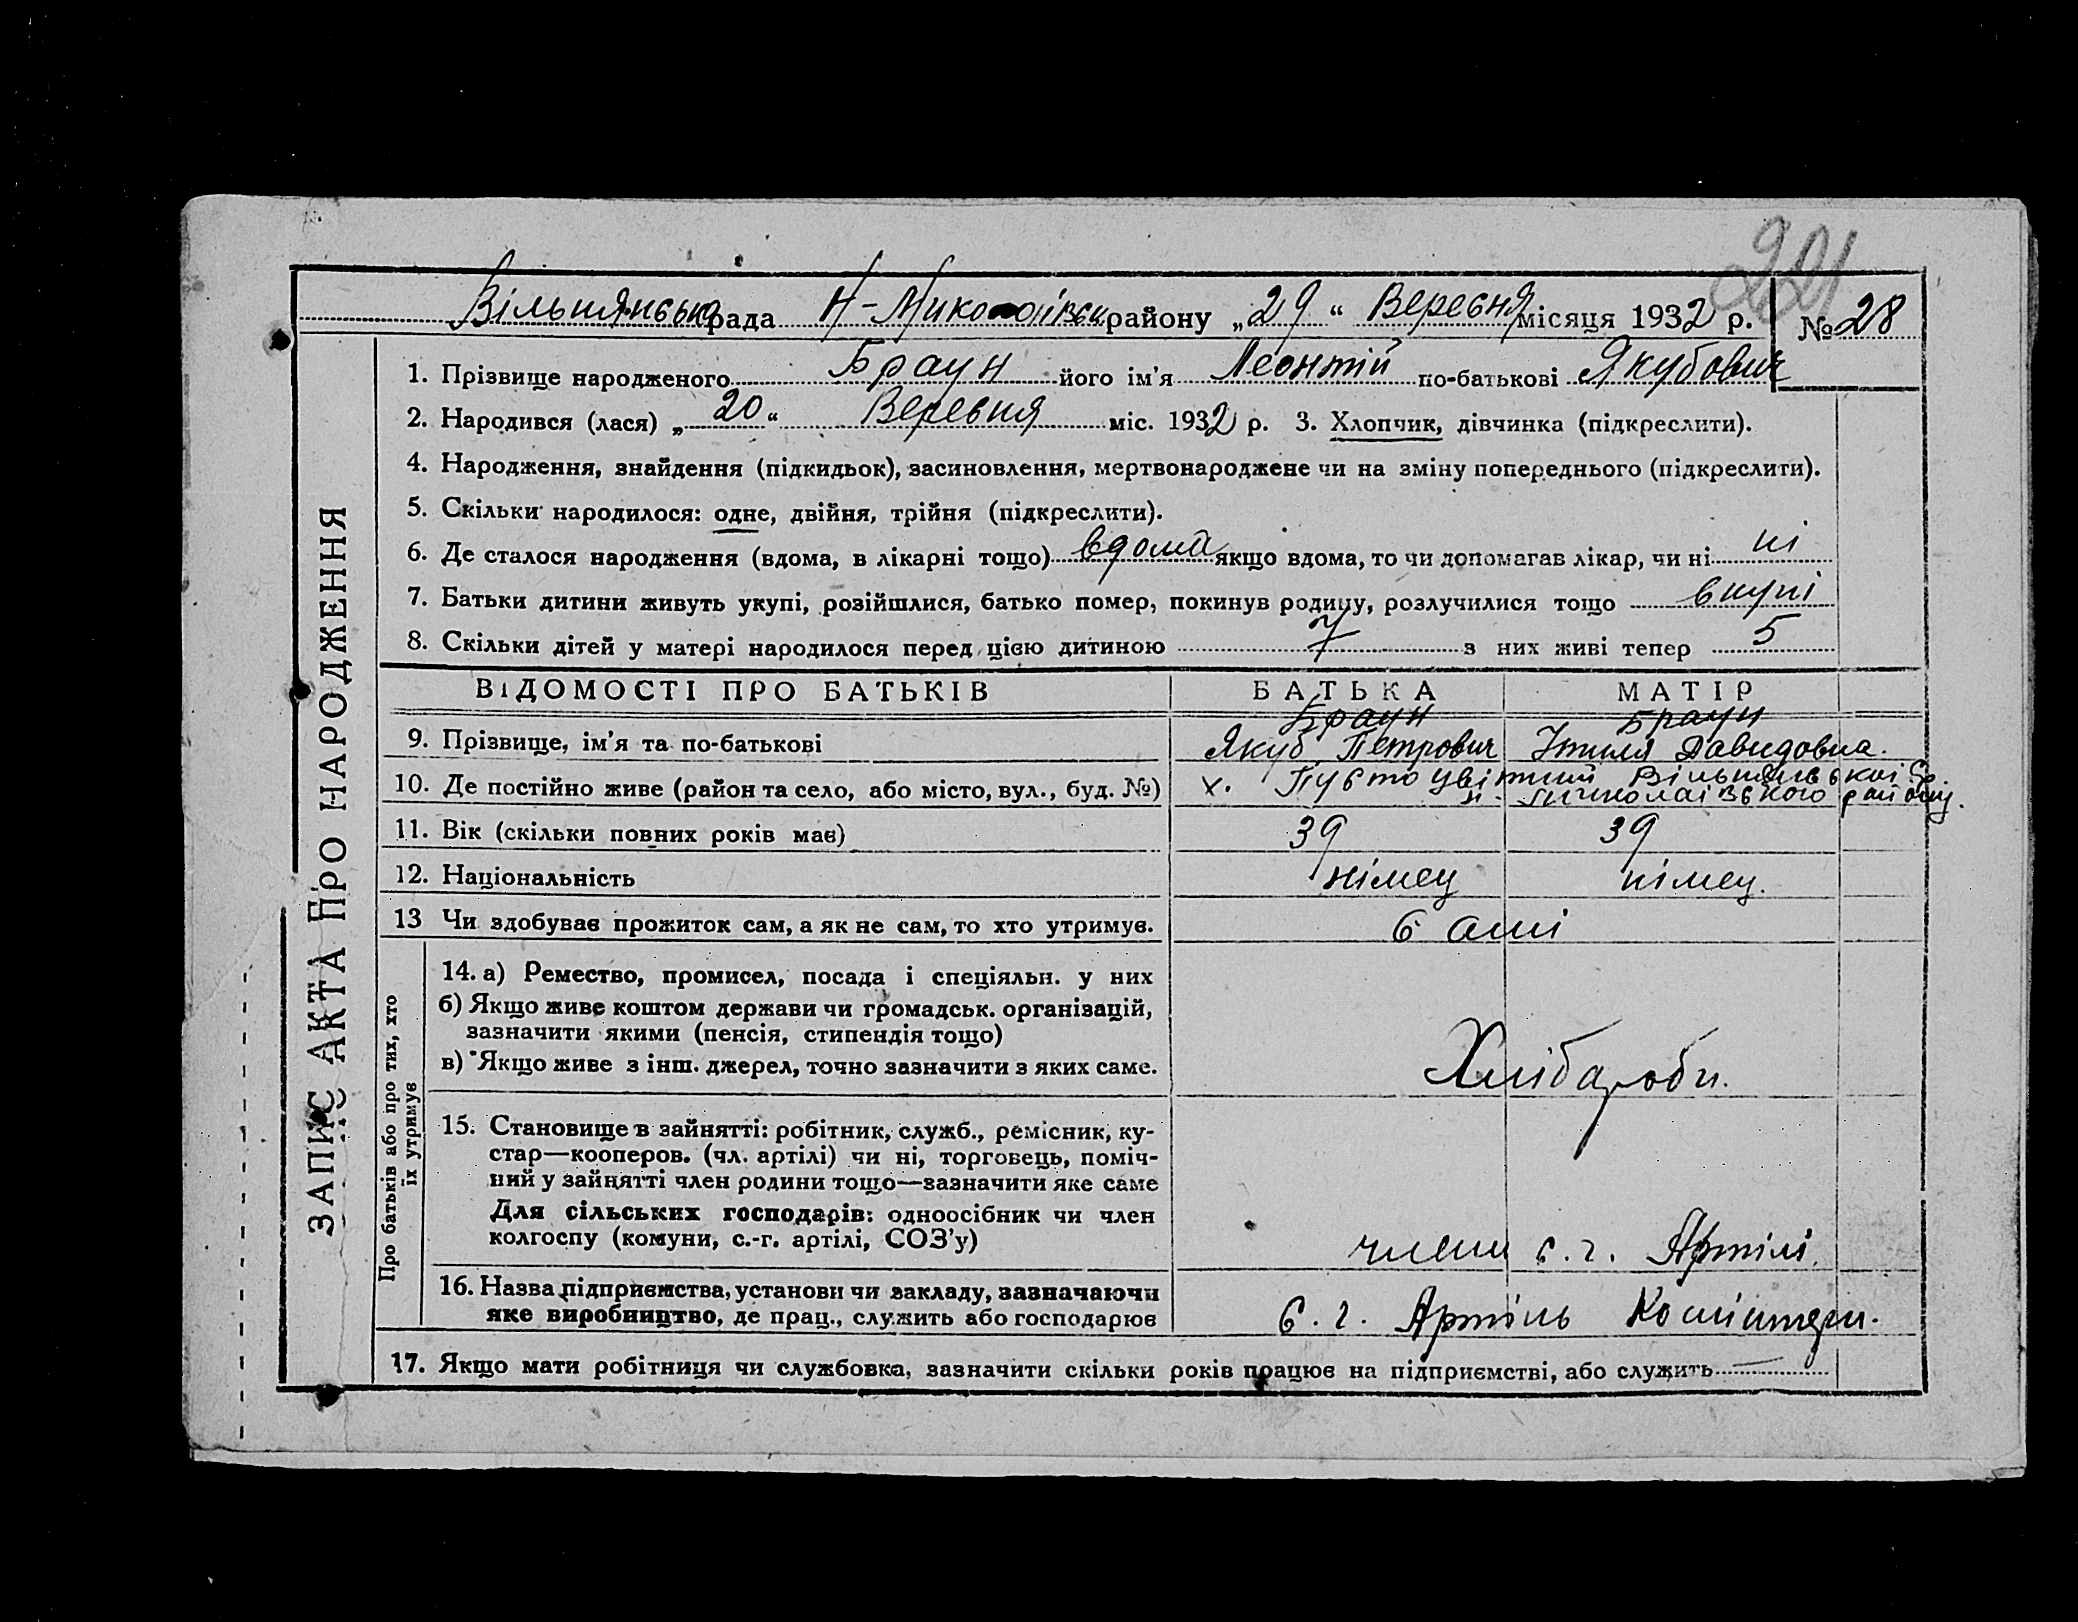 221
Вільнянська рада Н-Миколоївськ району „29“ Вересня місяця 1932 р. № 28
ЗАПИС АКТА ПРО НАРОДЖЕННЯ
1. Прізвище народженого Браун його ім’я Леонтій по-батькові Якубович
2. Народився (лася) „20“ Вересня міс. 1932 р. 3. Хлопчик, дівчинка (підкреслити).
4. Народження, знайдення (підкидьок), засиновлення, мертвонароджене чи на зміну попереднього (підкреслити).
5. Скільки народилося: одне, двійня, трійня (підкреслити).
6. Де сталося народження (вдома, в лікарні тощо) вдома якщо вдома, то чи допомагав лікар, чи ні ні
7. Батьки дитини живуть укупі, розійшлися, батько помер, покинув родину, розлучилися тощо вкупі
8. Скільки дітей у матері народилося перед цією дитиною 7 з них живі тепер 5
ВІДОМОСТІ ПРО БАТЬКІВ БАТЬКА МАТІР
Браун Браун
9. Прізвище, ім’я та по-батькові Якуб Петрович Давидовна.
10. Де постійно живе (район та село, або місто, вул., буд. №) х. Вільнянської с/р.
н. миколаївського району.
11. Вік (скільки повних років має) 39 39
12. Національність німец німец.
13 Чи здобуває прожиток сам, а як не сам, то хто утримує. самі
Про батьків або про тих, хто
їх утримує
14. а) Ремество, промисел, посада і спеціяльн. у них
б) Якщо живе коштом держави чи громадськ. організацій,
зазначити якими (пенсія, стипендія тощо)
в) Якщо живе з інш. джерел, точно зазначити з яких саме.
Хлібароби.
15. Становище в зайнятті: робітник, служб., ремісник, ку-
стар—кооперов. (чл. артілі) чи ні, торговець, поміч-
ний у зайнятті член родини тощо—зазначити яке саме
Для сільських господарів: одноосібник чи член
колгоспу (комуни, с.-г. артілі, СОЗ’у)
члени с. г. Артілі.
16. Назва підприємства, установи чи закладу, зазначаючи
яке виробництво, де прац., служить або господарює с. г. Артіль Комінтерн.
17. Якщо мати робітниця чи службовка, зазначити скільки років працює на підприємстві, або служить —